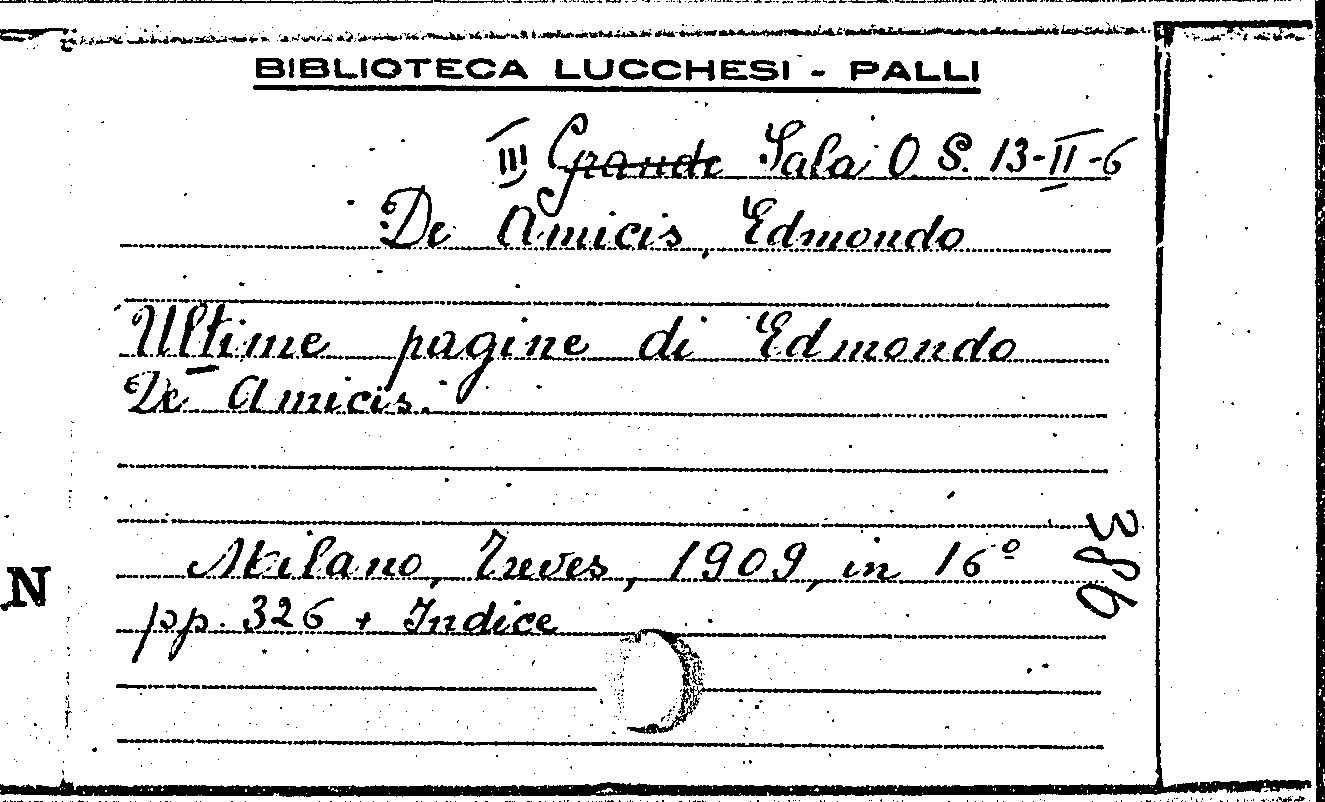 BIBLIOTECA LUCCHESI - PALLI
III Grande Sala O. S. 13-II-6
De Amicis, Edmondo
Ultime pagine di Edmondo
De Amicis.
386
Milano, Treves, 1909, in 16º
pp. 326 + Indice
N